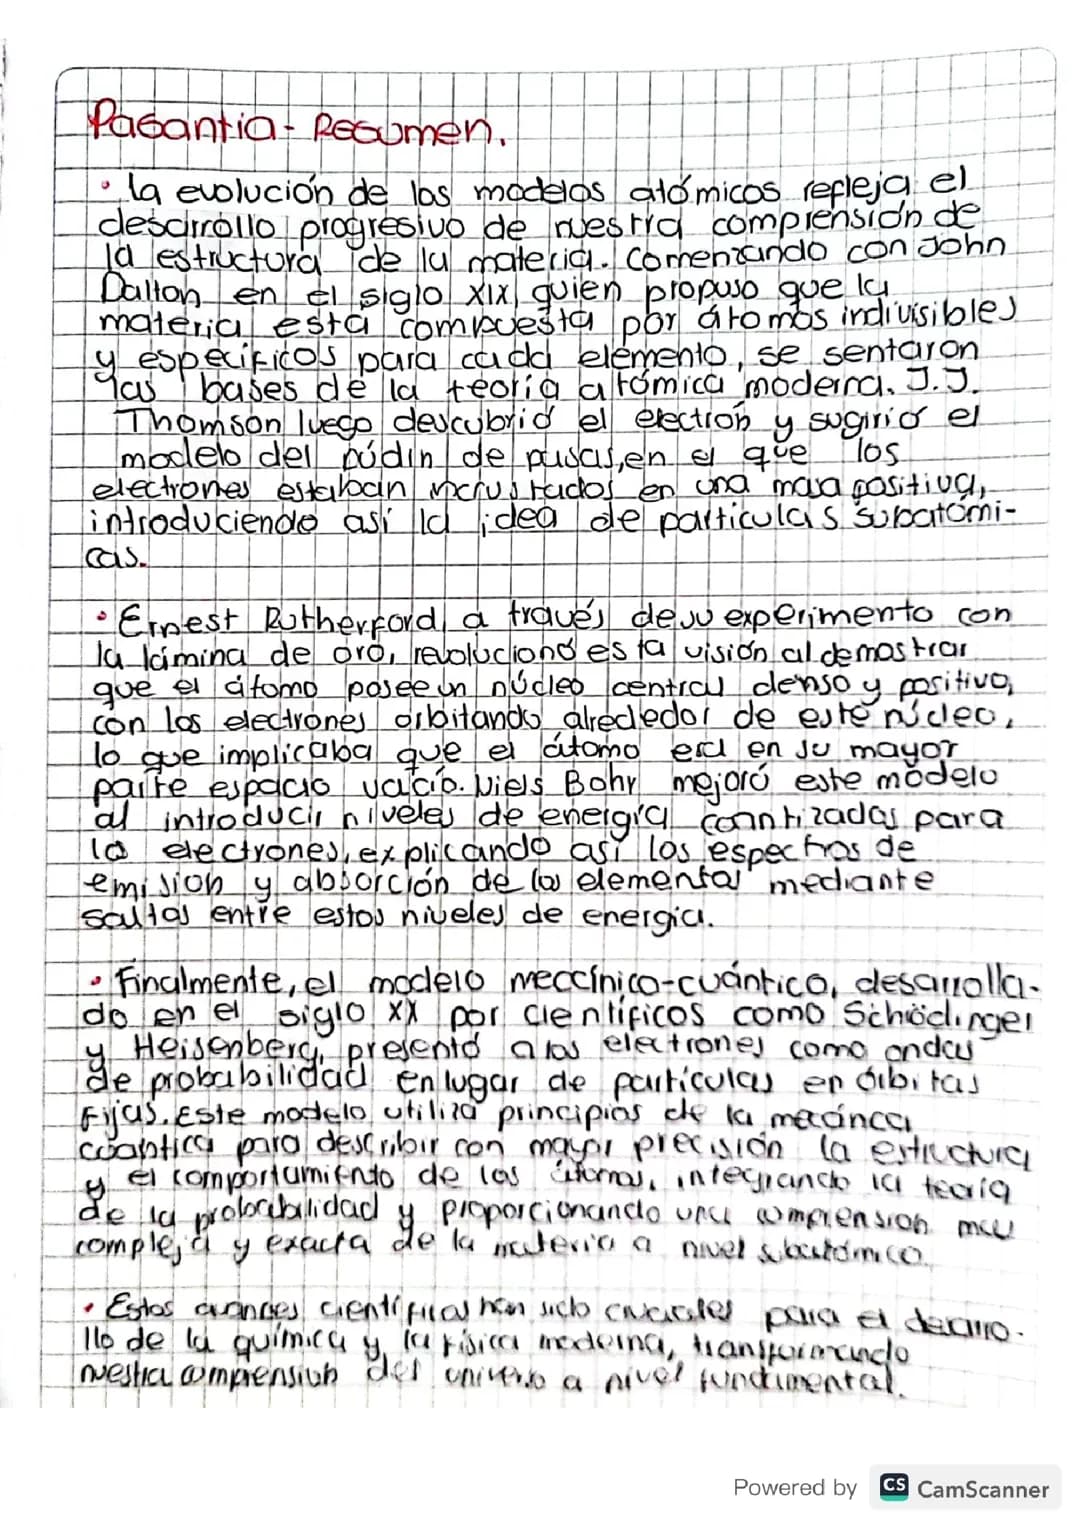 Pasantia - Resumen.
• la evolución de los modelos atómicos refleja el
desarrollo progresivo de nuestra comprensión de
la estructura de la materia. Comenzando con John
Dalton en el siglo XIX, quien propuso que la
materia está compuesta por átomos indivisibles
y específicos para cada elemento, se sentaron
las bases de la teoría atómica moderna. J.J.
Thomson luego descubrió el electrón y sugirió el
modelo del púdin de pasas, en el que los
electrones estaban incrustados en una masa positiva,
introduciendo así la idea de partículas subatómi-
cas.
• Ernest Rutherford, a través de su experimento con
la lámina de oro, revolucionó esta visión al demostrar
que el átomo posee un núcleo central denso y positivo,
con los electrones orbitando alrededor de este núcleo,
lo que implicaba que el átomo era en su mayor
parte espacio vacío. Niels Bohr mejoró este modelo
al introducir niveles de energía coantizadas para
los electrones, explicando así los espectros de
emisión y absorción de los elementos mediante
saltos entre estos niveles de energía.
• Finalmente, el modelo mecánico-cuántico, desarrolla-
do en el siglo XX por científicos como Schödinger
y Heisenberg, presentó a los electrones como ondas
de probabilidad en lugar de partículas en órbitas
fijas. Este modelo utiliza principios de la mecánca
cuántica para describir con mayor precisión la estructura
y el comportamiento de los átomos, integrando la teoría
de la probabilidad y proporcionando una comprensión más
compleja y exacta de la materia a nivel subatómico.
• Estos avances científicos han sido cruciales para el desarro-
llo de la química y la física moderna, transformando
nuestra comprensión del universo a nivel fundamental.
Powered by CS CamScanner